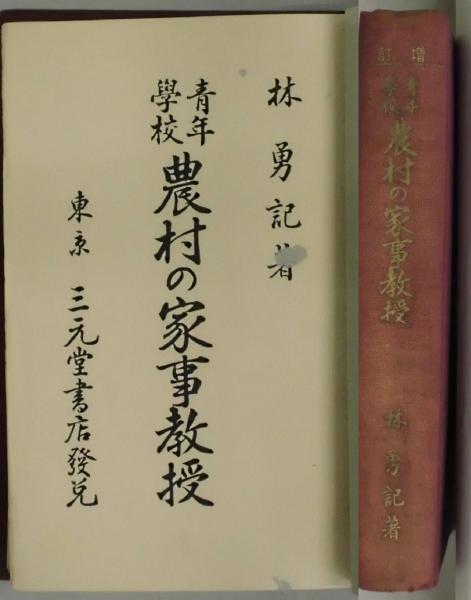 林勇記著
青年
學校
農村の家事教授
東京 三元堂書店發兌
増訂
青年
學校
農村の家事教授
林勇記著